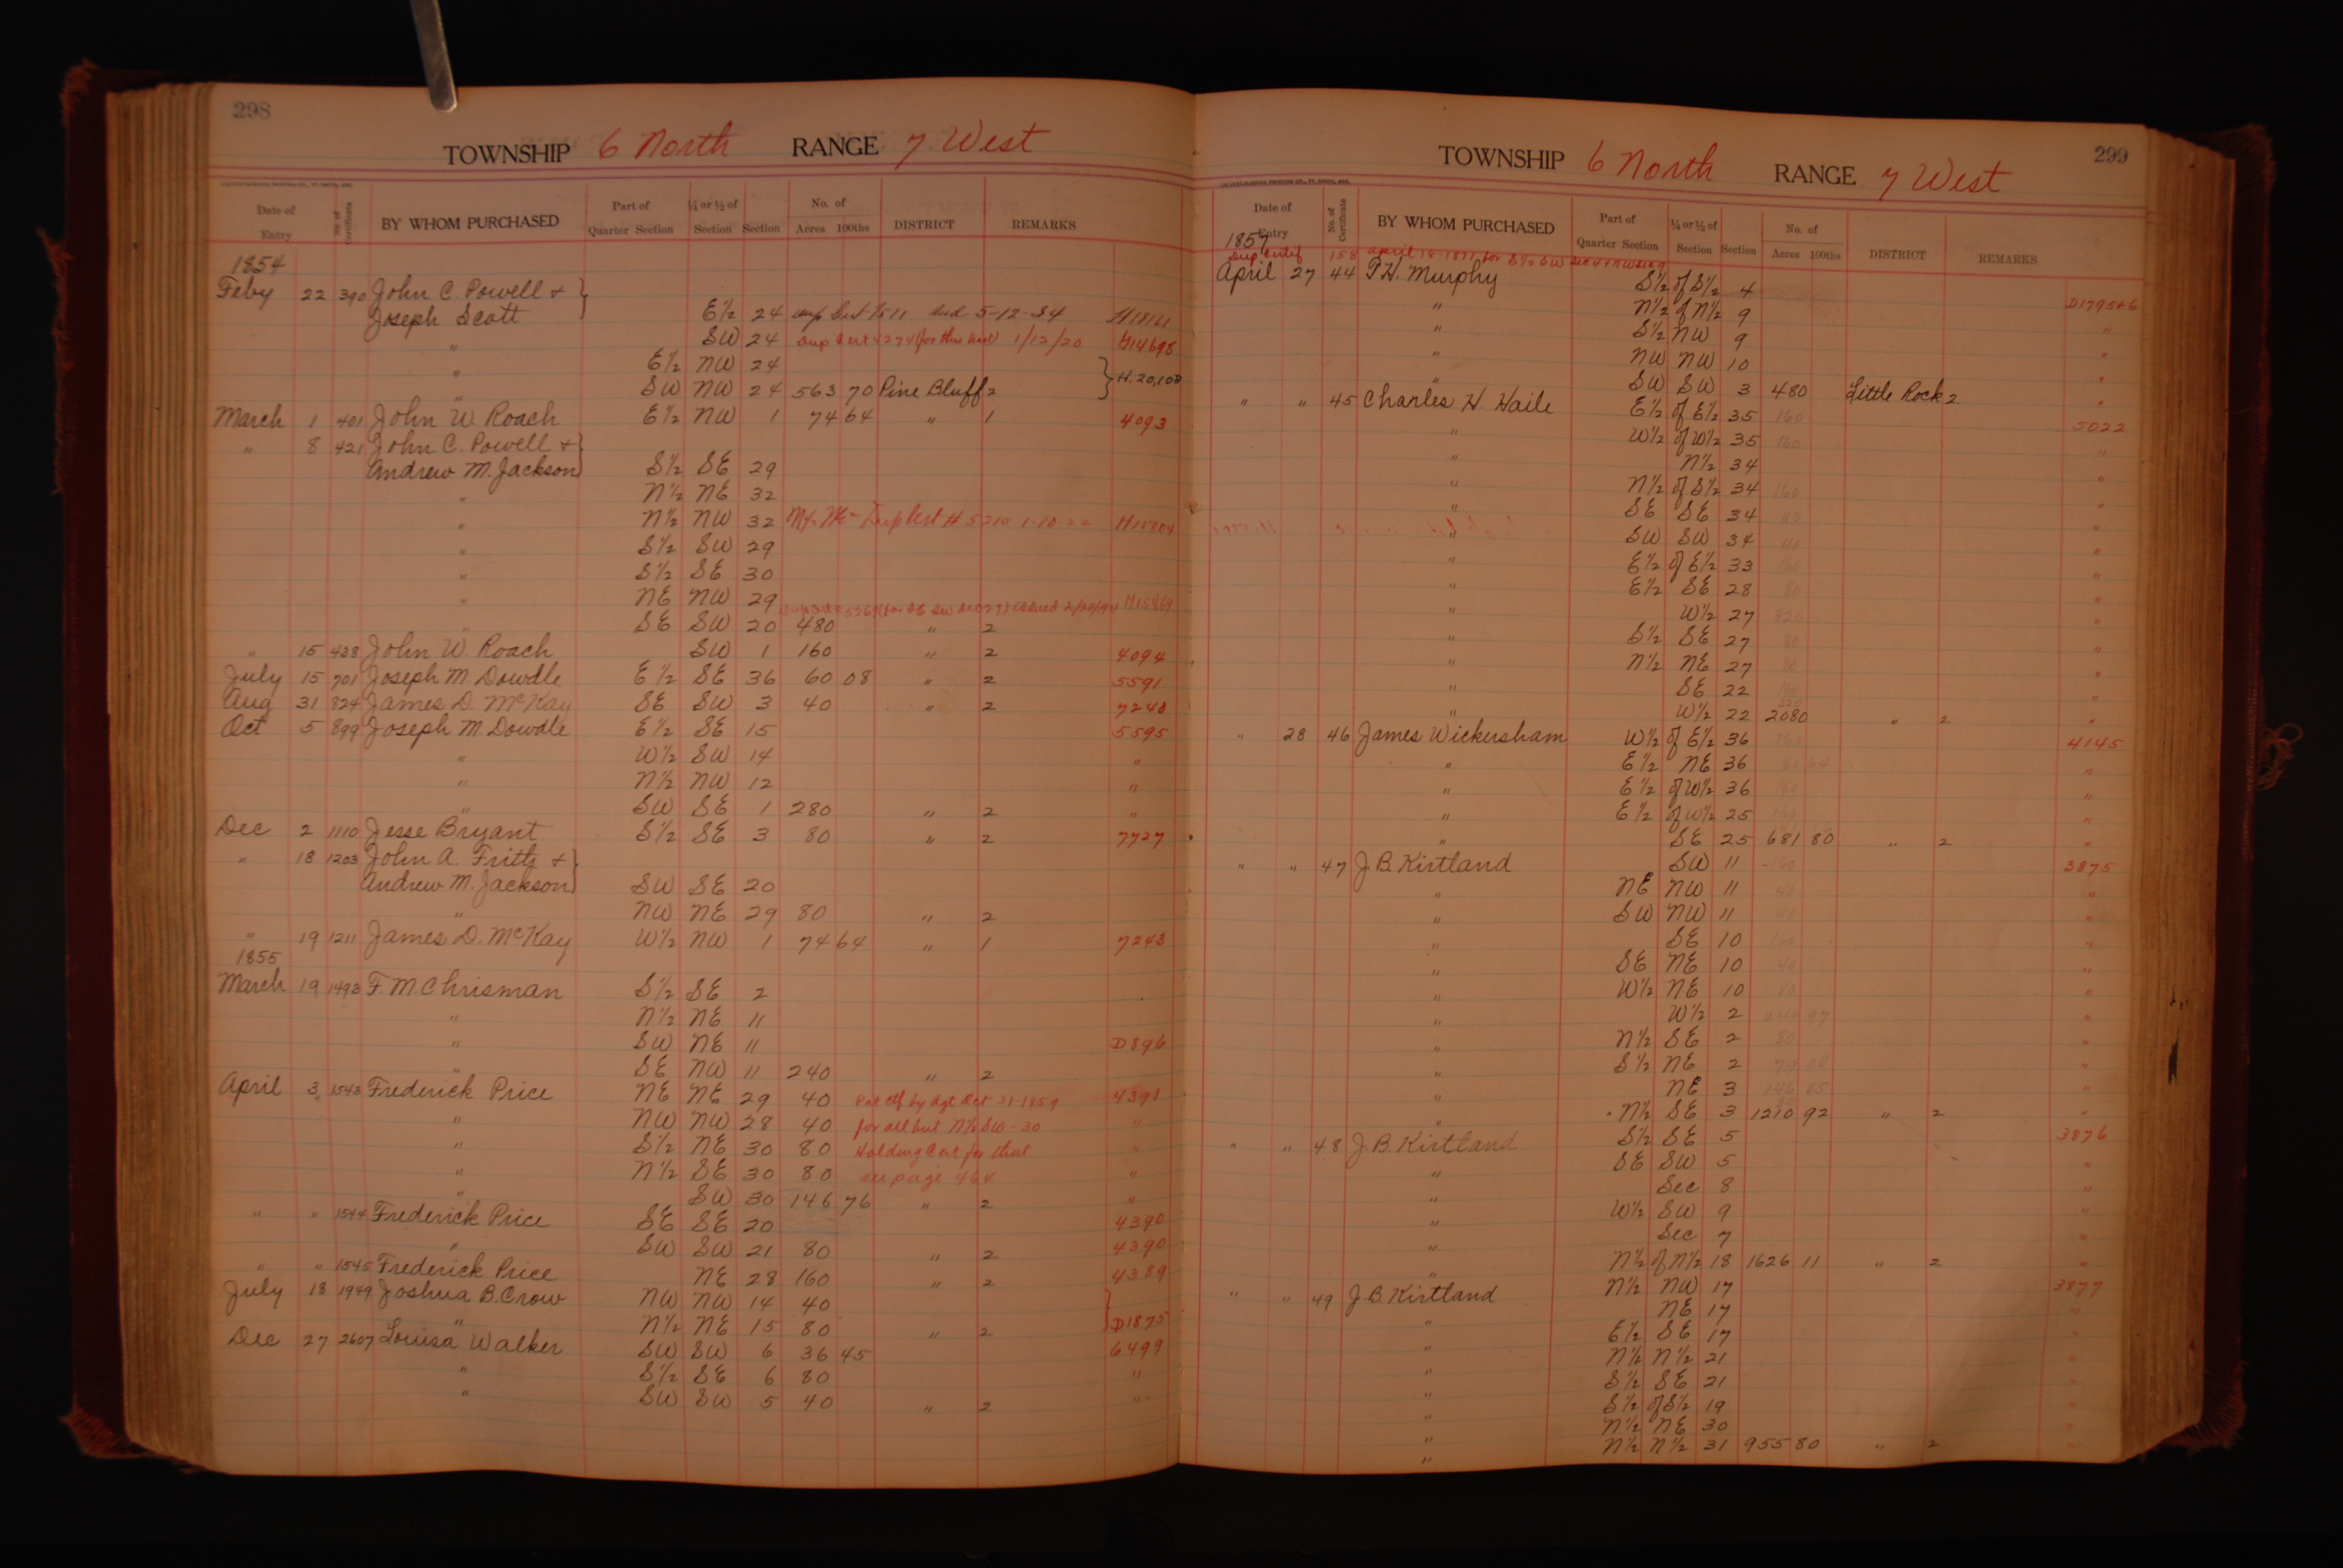 298
TOWNSHIP 6 North RANGE 7 West
Date of Entry No. of Certificate BY WHOM PURCHASED Part of Quarter Section ¼ or ½ of Section Section No. of Acres 100ths DISTRICT REMARKS
1854
Feby 22 390 John C. Powell &
Joseph Scott E½ 24 5-12-34 H18161
" SW 24 Dup Cert 4274 (for this tract) 1/12/20 H14698
" E½ NW 24
" SW NW 24 563 70 Pine Bluff 2 H.20,108
March 1 401 John W. Roach E½ NW 1 74 64 " 1 4093
" 8 421 John C. Powell &
Andrew M. Jackson S½ SE 29
" N½ NE 32
" N½ NW 32 Dup Cert # 5210 1-10-22 H15804
" S½ SW 29
" S½ SE 30
" NE NW 29 issued H15969
" SE SW 20 480 " 2
" 15 438 John W. Roach SW 1 160 " 2 4094
July 15 701 Joseph M. Dowdle E½ SE 36 60 08 " 2 5591
Aug 31 824 James D. McKay SE SW 3 40 " 2 7240
Oct 5 899 Joseph M. Dowdle E½ SE 15 5595
" W½ SW 14 "
" N½ NW 12 "
" SW SE 1 280 " 2 "
Dec 2 1110 Jesse Bryant S½ SE 3 80 " 2 7727
" 18 1203 John A. Fritz &
Andrew M. Jackson SW SE 20
" NW NE 29 80 " 2
" 19 1211 James D. McKay W½ NW 1 74 64 " 1 7243
1855
March 19 1493 F. M. Chrisman S½ SE 2
" N½ NE 11
" SW NE 11 D896
" SE NW 11 240 " 2
April 3 1543 Frederick Price NE NE 29 40 Pat Ctf by Agt Oct 31-1859 4391
" NW NW 28 40 for all but N½ SW-30 "
" S½ NE 30 80 Holding Cert for that "
" N½ SE 30 80 see page 464
" SW 30 146 76 " 2 "
" " 1544 Frederick Price SE SE 20 4390
" SW SW 21 80 " 2 4390
" " 1545 Frederick Price NE 28 160 " 2 4389
July 18 1949 Joshua B. Crow NW NW 14 40
" N½ NE 15 80 " 2 D1875
Dec 27 2607 Louisa Walker SW SW 6 36 45 6499
" S½ SE 6 80 "
" SW SW 5 40 " 2 "
299
TOWNSHIP 6 North RANGE 7 West
Date of Entry No. of Certificate BY WHOM PURCHASED Part of Quarter Section ¼ or ½ of Section Section No. of Acres 100ths DISTRICT REMARKS
1857
Dup Certif 158 April 18-1871 for S½ SW
April 27 44 T. H. Murphy S½ of S½ 4 D1795+6
" N½ of N½ 9 "
" S½ NW 9 "
" NW NW 10 "
" SW SW 3 480 Little Rock 2 "
" " 45 Charles H. Haile E½ of E½ 35 160 5022
" W½ of W½ 35 160 "
" N½ 34 "
" N½ of S½ 34 160 "
" SE SE 34 40 "
" SW SW 34 40 "
" E½ of E½ 33 160 "
" E½ SE 28 80 "
" W½ 27 320 "
" S½ SE 27 80 "
" N½ NE 27 80 "
" SE 22 160 "
" W½ 22 2080 " 2 "
" 28 46 James Wickersham W½ of E½ 36 160 4145
" E½ NE 36 "
" E½ of W½ 36 160 "
" E½ of W½ 25 160 "
" SE 25 681 80 " 2 "
" " 47 J. B. Kirtland SW 11 160 3875
" NE NW 11 40 "
" SW NW 11 40 "
" SE 10 160 "
" SE NE 10 40 "
" W½ NE 10 80 "
" W½ 2 "
" N½ SE 2 80 "
" S½ NE 2 "
" NE 3 146 85 "
" N½ SE 3 1210 92 " 2 "
" " 48 J. B. Kirtland S½ SE 5 3876
" SE SW 5 "
" Sec 8 "
" W½ SW 9 "
" Sec 7 "
" N½ of N½ 18 1626 11 " 2 "
" " 49 J. B. Kirtland N½ NW 17 3877
" NE 17 "
" E½ SE 17 "
" N½ N½ 21 "
" S½ SE 21 "
" S½ of S½ 19 "
" N½ NE 30 "
" N½ N½ 31 955 80 " 2 "